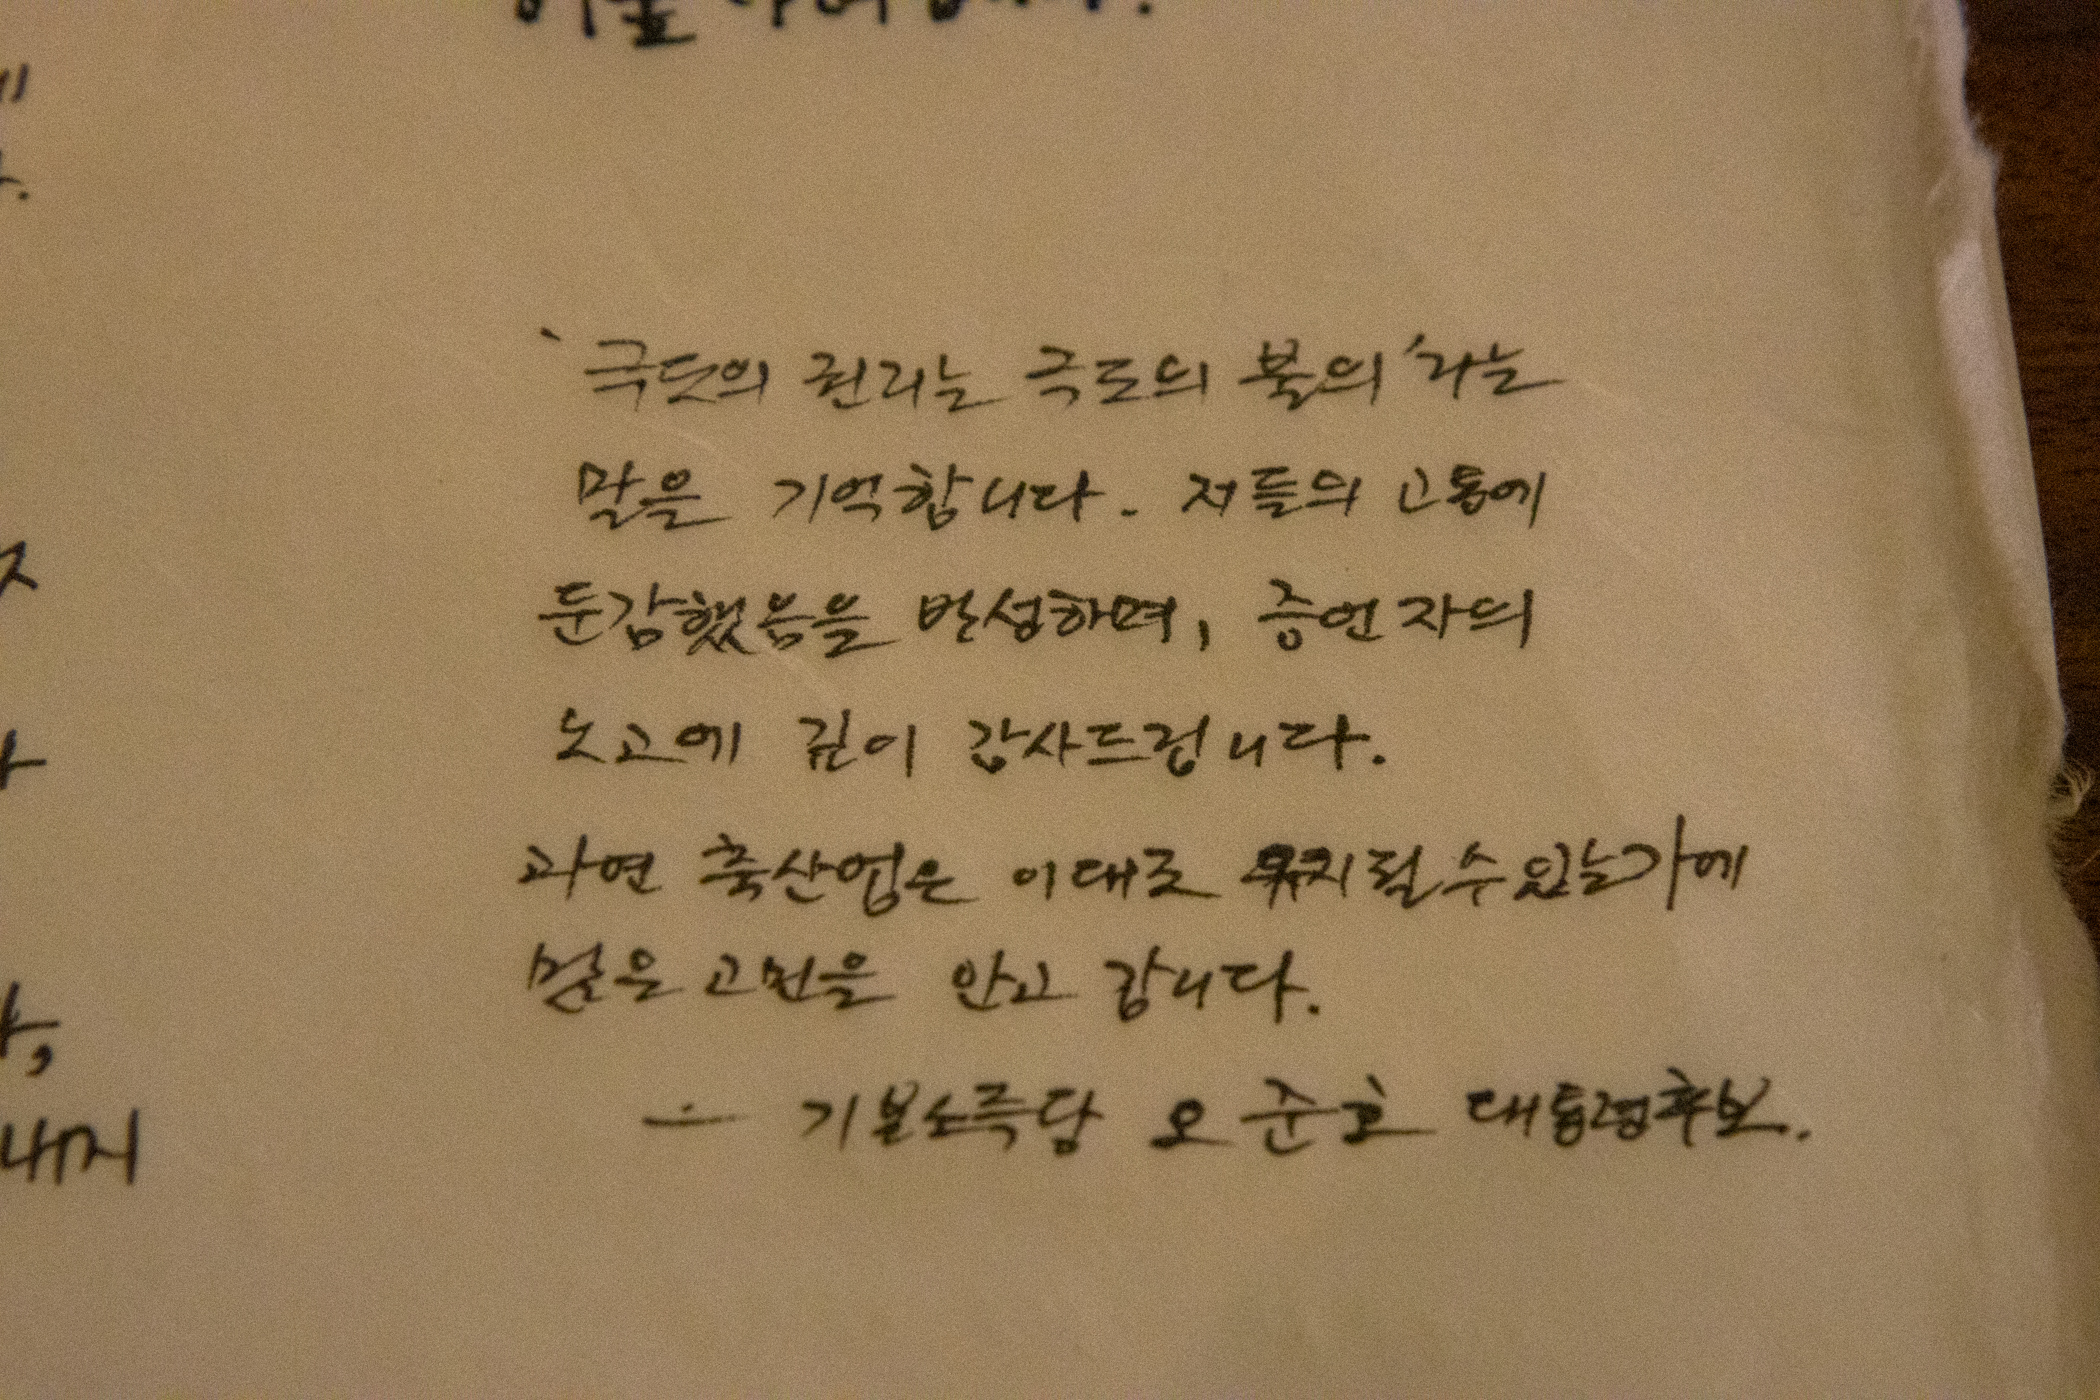 '극도의 권리는 극도의 불의'라는
말을 기억합니다. 저들의 고통에
둔감했음을 반성하며, 증언자의
노고에 깊이 감사드립니다.
과연 축산업은 이대로 유지될 수 있는가에
많은 고민을 안고 갑니다.
- 기본소득당 오준호 대통령후보.